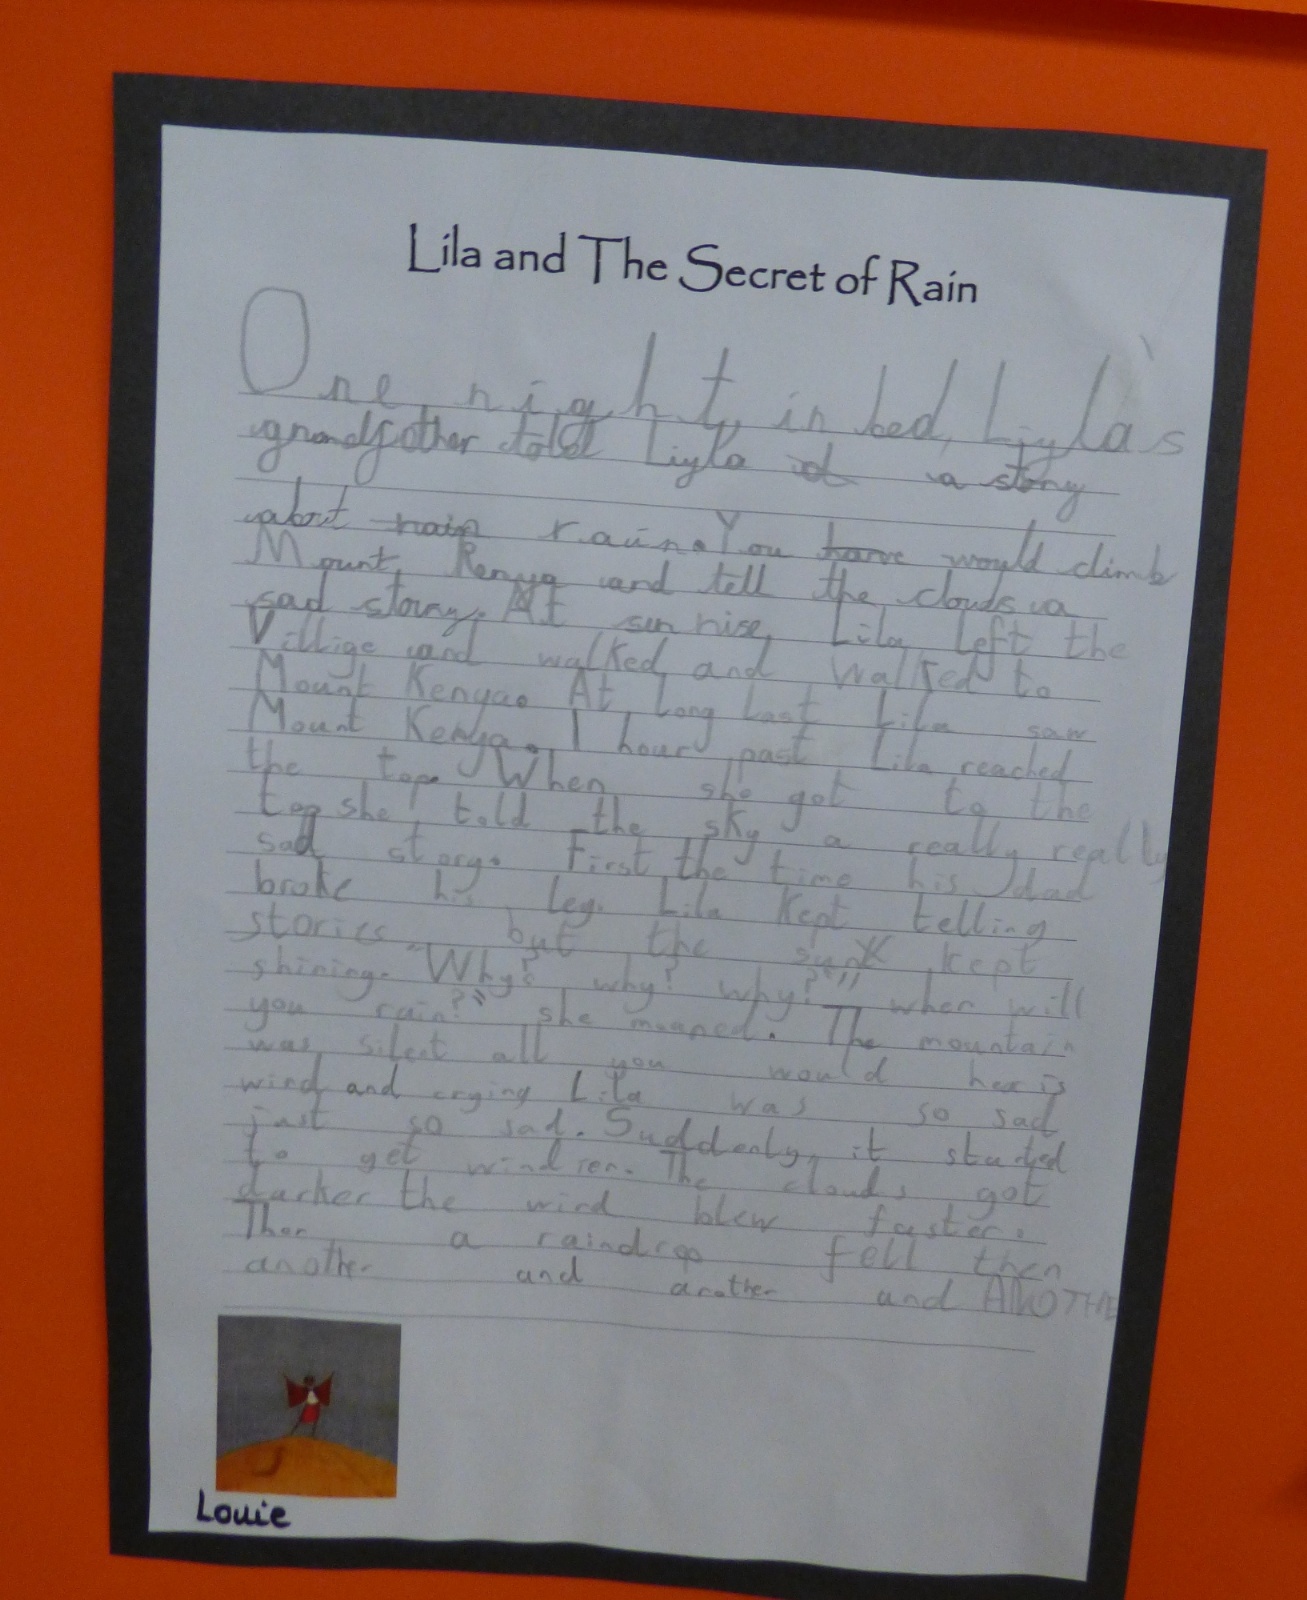 Lila and The Secret of Rain
One night, in bed, Liyla's
grandfother told Liyla a story
about rain rain. You have would climb
Mount Kenya and tell the clouds a
sad story. At sun rise, Lila left the
Villige and walked and walked to
Mount Kenya. At long last Lila saw
Mount Kenya. 1 hour past Lila reached
the top. When she got to the
top she told the sky a really really
sad story. First the time his dad
broke his leg. Lila kept telling
stories but the sun kept
shining. "Why? why? why?" when will
you rain?" she moaned. The mountain
was silent all you would her is
wind and crying Lila was so sad
just so sad. Suddenly, it started
to get windier. The clouds got
darker the wind blew faster.
Then a raindrop fell then
another and another and ANOTHE
Louie